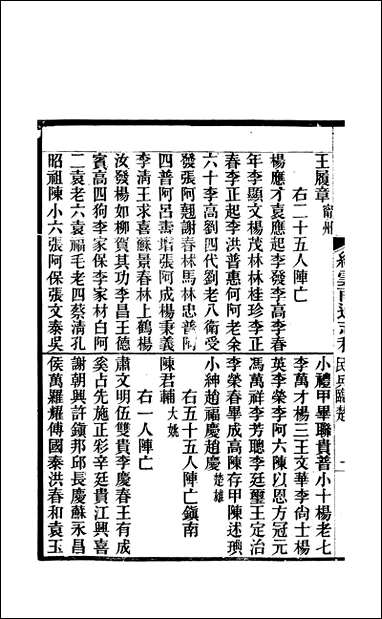 續雲南通志稿
民兵臨楚
王履章 甯州
右二十五人陣亡
楊應才袁應起李發李高李春
年李顯文楊茂林林桂珍李正
春李正起李洪普惠何阿老余
六十李高劉四代劉老八衛受
發張阿翹謝春林馬林忠普阿
四普阿呂壽培張阿成楊秉義
李淸王求喜蘇景春林上鶴楊
汝發楊如柳賀其功李昌王德
賓高四狗李家保李家材白阿
二袁老六袁福毛老四蔡淸孔
昭祖陳小六張阿保張文泰吳
小禮甲畢聯貴普小十楊老七
李萬才楊三王文華李尙士楊
英李榮李阿六陳以恩方冠元
馮萬祥李芳聰李廷璽王定治
李榮春畢成高陳存甲陳述璵
小紳趙福慶趙慶 楚雄
右五十五人陣亡鎭南
陳君輔 大姚
右一人陣亡
肅文明伍雙貴李慶春王有成
奚占先施正彩辛廷貴江興喜
謝朝興許鎭邦邱長慶蘇永昌
侯萬羅耀傅國泰洪春和袁玉